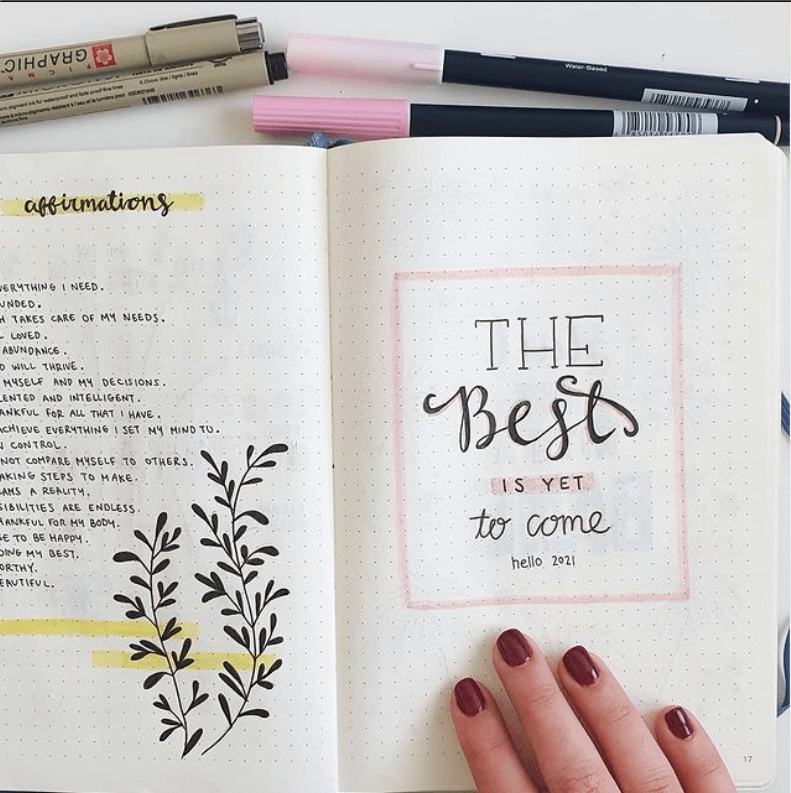 GRAPHIC
Water-Based
affirmations
EVERYTHING I NEED.
TAKES CARE OF MY NEEDS.
LOVED.
ABUNDANCE.
WILL THRIVE.
MYSELF AND MY DECISIONS.
AND INTELLIGENT.
FOR ALL THAT I HAVE.
ACHIEVE EVERYTHING I SET MY MIND TO.
CONTROL.
NOT COMPARE MYSELF TO OTHERS.
STEPS TO MAKE.
A REALITY.
ARE ENDLESS.
FOR MY BODY.
TO BE HAPPY.
MY BEST.
THE
Best
IS YET
to come
hello 2021
17